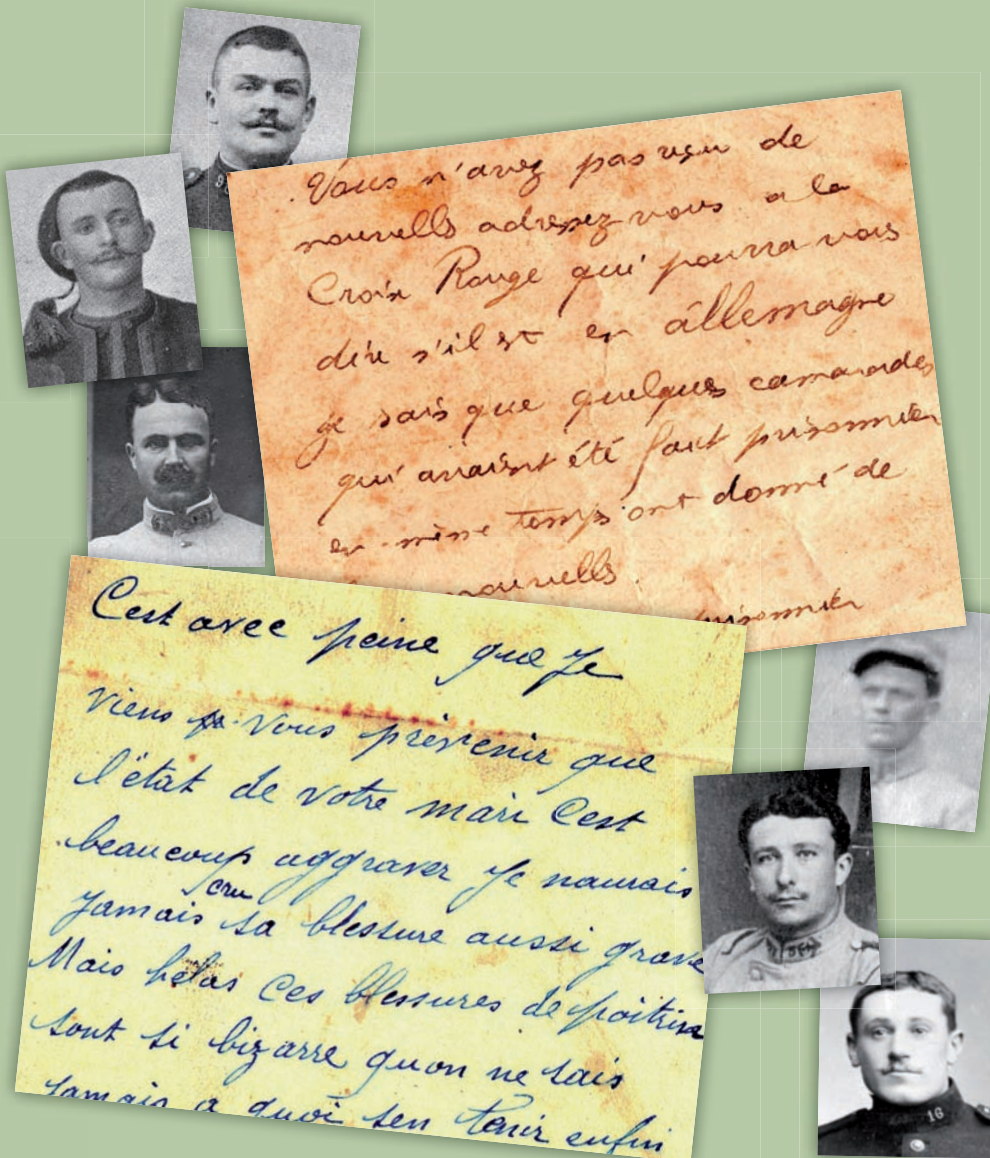 Vous n'avez pas reçu de
nouvells adressez vous a la
Croix Rouge qui pourra vous
dire s'il est en allemagne
je sais que quelques camarades
qui avaient été fait prisonnier
en même temps ont donné de
nouvells.
prisonnier
Cest avec peine que Je
viens vous prévenir que
l'état de votre mari Cest
beaucoup aggraver Je naurais
Jamais cru sa blessure aussi grave
Mais hélas Ces blessures de poitrine
sont si bizarre quon ne sais
Jamais a quoi sen tenir enfin
16